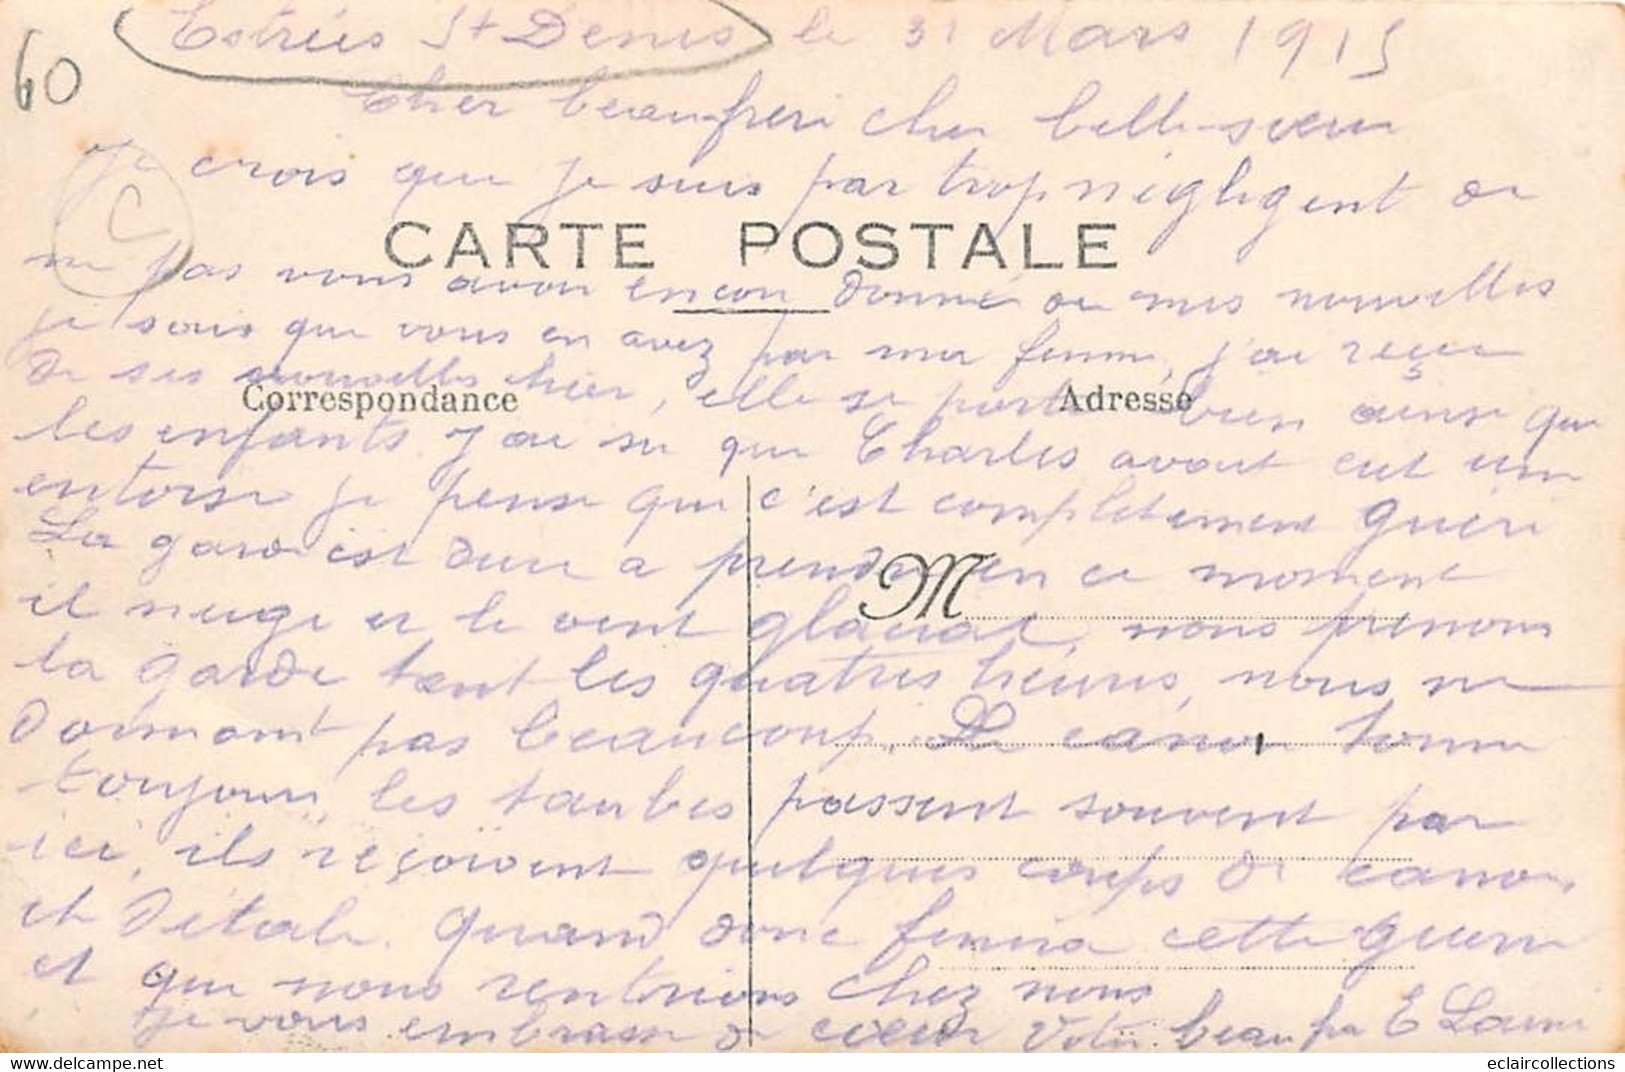 60
Estrées St Denis le 31 Mars 1915
Cher beaufrere cher belle-sœur
je crois que je suis par trop négligent de
C
CARTE POSTALE
ne pas vous avoir encore donné de mes nouvelles
je sais que vous en avez par ma femme, j'ai reçu
de ses nouvelles hier, elle se porte bien ainsi que
Correspondance
Adresse
les enfants. J'ai su que Charles avait eut une
entorse je pense que c'est completement guéri
La garde est dure a prendre en ce moment
M
il neige et le vent glacial, nous prenons
la garde tout les quatres heures, nous ne
dormont pas beaucoup. Le canon tonne
toujours, les taubes passent souvent par
ici, ils reçoivent quelques coups de canons
et détale. Quand donc finira cette guerre
et que nous rentrions chez nous
Je vous embrasse de cœur Votre beau fre E
delcampe.net
eclaircollections